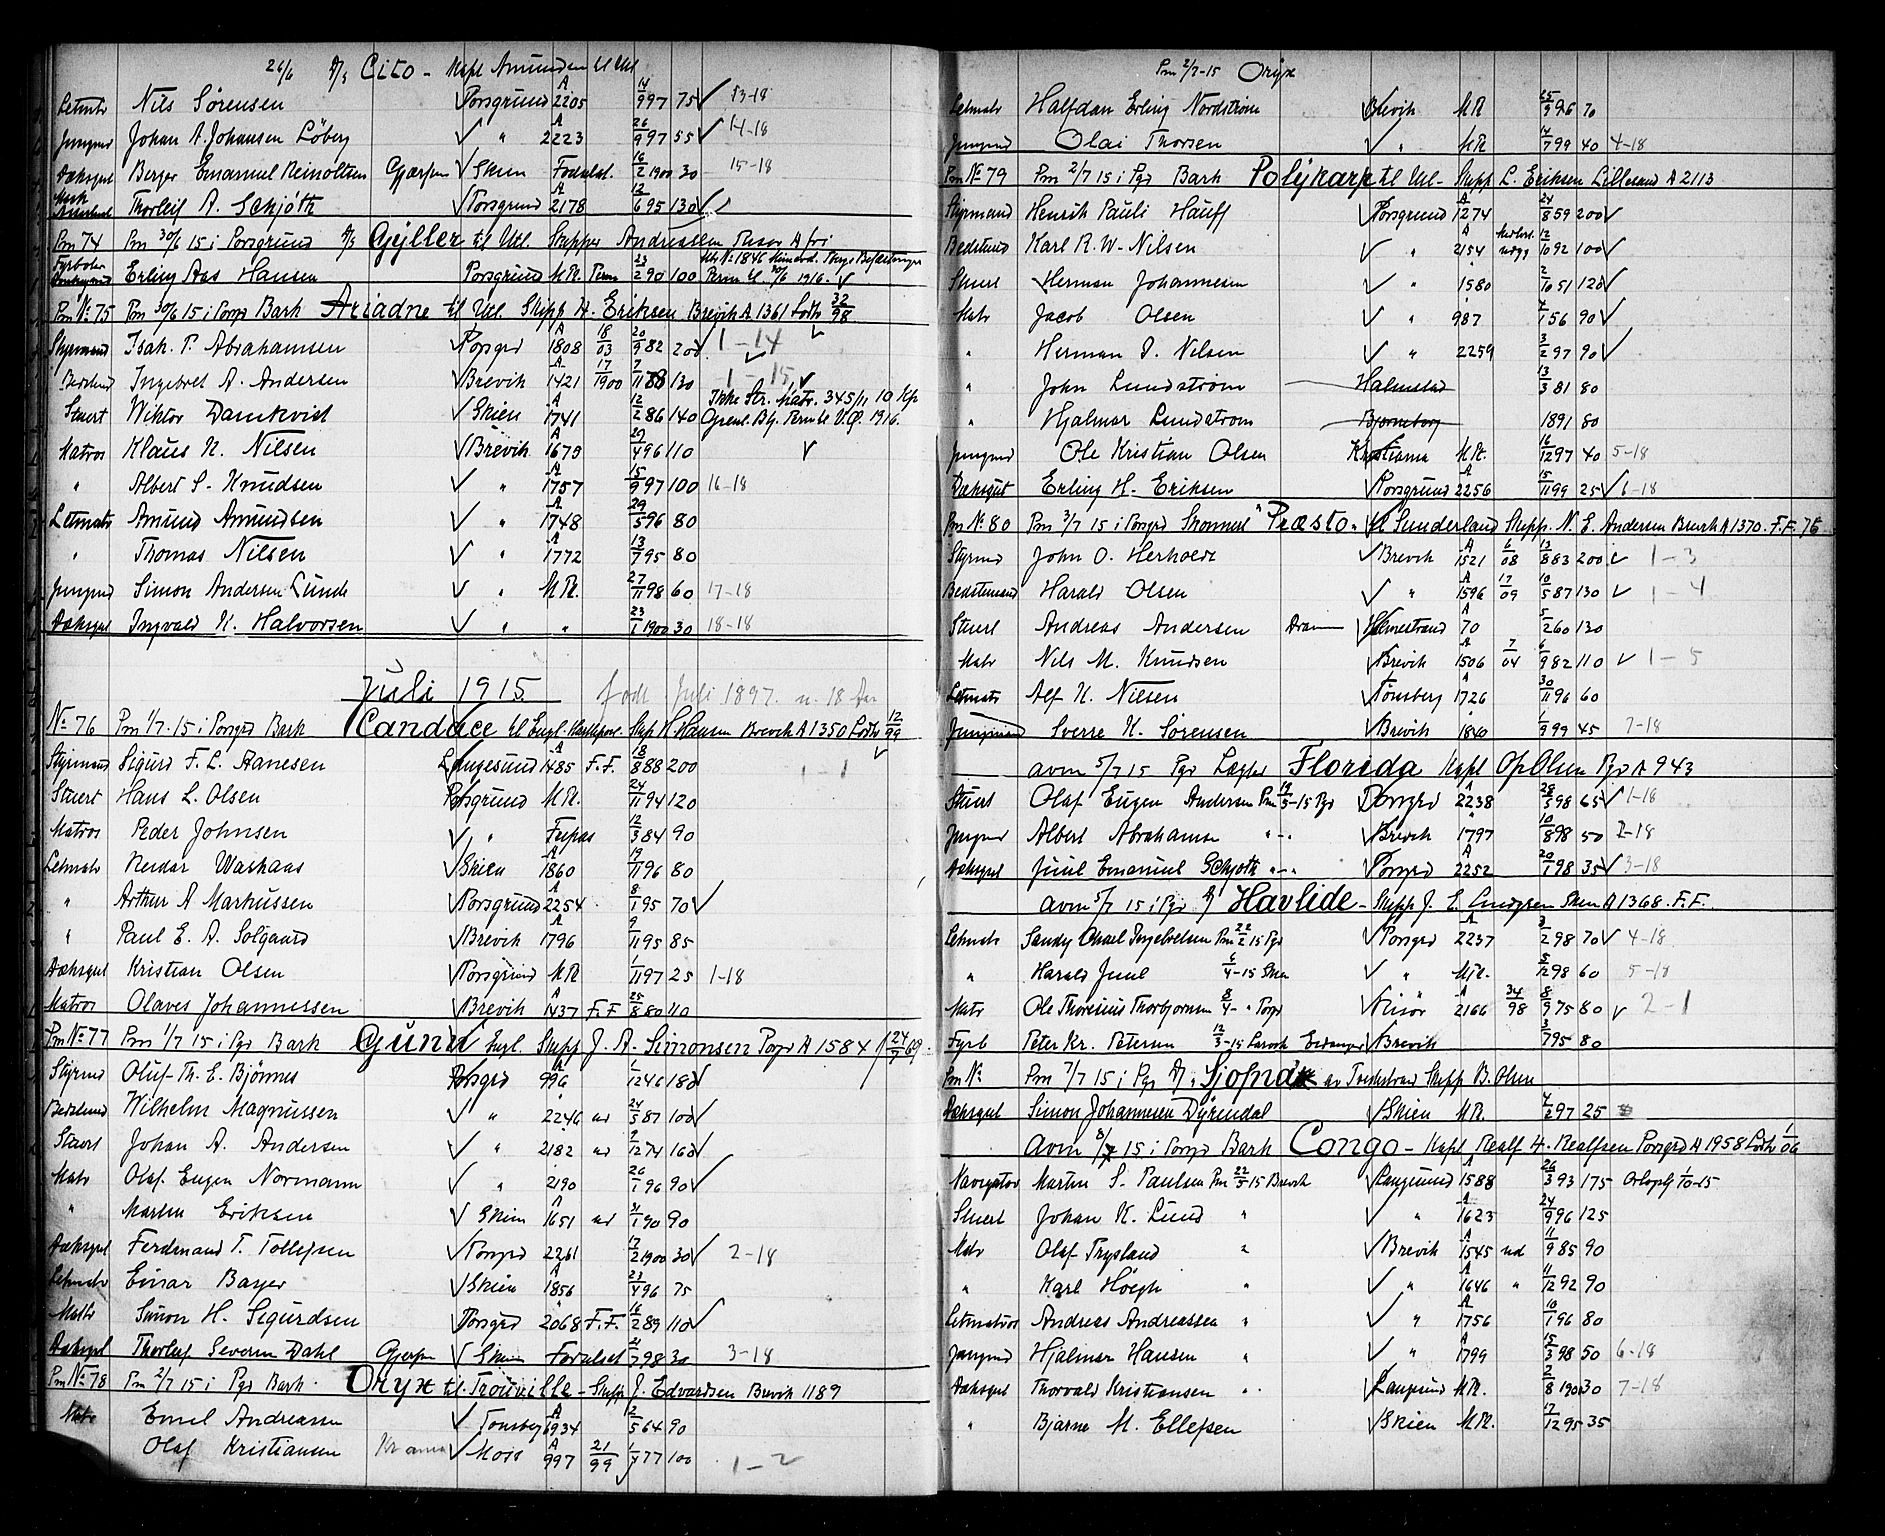 26/6 D/s Cito - Kapt Amundsen til Utl
Letmtr Nils Sørensen Porsgrund A 2205 14/9 97 75 13-18
Jungmd Johan A. Johansen Löberg " A 2223 26/9 97 55 14-18
Dæksgut Berger Emanuel Reinoltsen Gjerpen Skien Fødselsat. 16/2 1900 30 15-18
Thorleif A. Schjöth Porsgrund A 2178 12/6 95 130
Pm 74 Pm 30/6 15 i Porsgrund D/s Gyller til Utl. Skipper Andreassen
Fyrböter Erling Aas Hansen Porsgrund M.R. 23/2 90 100
Pm No 75 Pm 30/6 15 i Porsgr Bark Ariadne til Utl. Skipp H. Eriksen Brevik A 1361 Lods 32/98
Styrmand Isak. P. Abrahamsen Porsgrd A 1808 18/03 20/9 82 200 1-14
Bedstmd Ingebret A. Andersen Brevik A 1421 17/1900 7/11 88 130 1-15
Stuert Wiktor Damkvist Skien A 1741 12/2 86 140
Matros Klaus N. Nilsen Brevik A 1679 29/4 96 110
" Albert S. Knudsen " A 1757 15/9 97 100 16-18
Letmatr Amund Amundsen " A 1748 29/5 96 80
" Thomas Nilsen " A 1772 13/7 95 80
Jungmd Simon Andersen Lunde " M.R. 27/11 98 60 17-18
Dæksgut Ingvald K. Halvorsen " " 23/1 1900 30 18-18
Juli 1915. født Juli 1897. u. 18 Aar
No 76 Pm 1/7. 15 i Porsgrd Bark Candace til Engl. Hartlepool. Skp H. Hansen Brevik A 1350 Lods 12/99
Styrmand Sigurd F. L. Aanesen Langesund A 1485 F.F. 18/8 88 200 1-1
Stuert Hans L. Olsen Porsgrund M.R. 24/11 94 120
Matros Peder Johnsen " Fripas 12/3 84 90
Letmatr Reidar Waskaas Skien A 1860 19/11 96 80
" Arthur A Markussen Porsgrund A 2254 8/1 95 70
" Paul E. A. Solgaard Brevik A 1796 9/11 95 85
Dæksgut Kristian Olsen Porsgrund M.R. 1/11 97 25 1-18
Matros Olaves Johannessen Brevik A 1437 F.F 25/8 80 110
Pm No 77 Pm 1/7 15 i Pgr Bark Gunn Engl. Skipp J. A. Simonsen Porgr A 1584
Styrmd Oluf Th. E. Bjönnes Porsgrd 996 1/12 46 180
Bedstmd Wilhelm Magnussen " 2246 ud 24/5 87 100
Stuert Johan A. Andersen " 2182 ud 9/12 74 160
Matr Olaf. Eugen Normann " 2190 26/1 96 90
" Martin Eriksen Skien A 1651 ud 31/1 90 90
Dæksgut Ferdinand T. Tollefsen Porsgrd 2261 17/2 1900 30 2-18
Letmatr Einar Bayer Skien A 1856 23/4 96 75
Matr Simon H. Sigurdsen Porsgrd 2068 F.F. 16/2 89 110
Dæksgut Thorleif Severin Dahl Gjerpen Skien Fødselsat 21/7 98 30 3-18
Pm No 78 Pm 2/7 15 i Pgr Bark. Oryx til. Trouville - Skipp J. Edvardsen Brevik 1189
Matr Emil Andreassen Tønsberg A 6934 2/5 64 90
Olaf Kristiansen Kr ania Moss A 997 21/99 1/7 77 100 1-2
Pm 2/7-15 Oryx
Letmatr Halfdan Erling Nordstrøm Brevik M.R. 25/9 96 70
Jungmd Olai Thorsen " M.R. 14/7 99 40 4-18
Pm No 79 Pm 2/7 15 i Pgr Bark Polykarp til Utl - Skipp L. Eriksen Lillesand A 2113
Styrmand Henrik Pauli Hauff Porsgrund A 1274 24/8 59 200
Bedstmd Karl R. W. Nilsen " 2154 12/10 92 100
Stuert Herman Johannesen " 1580 2/10 51 120
Matr Jacob Olsen " 987 4/1 56 90
" Herman D. Nilsen " 2259 3/2 97 90
" John Lundstrøm Halmstad 13/3 81 80
" Hjalmar Lundstrøm Bjørneborg 1891 80
Jungmd Ole Kristian Olsen Kristiania M.R. 16/12 97 40 5-18
Dæksgut Erling H. Eriksen Porsgrund A 2256 15/11 99 25 6-18
Pm No 80 Pm 3/7 15 i Porsgrd Skonnert "Præsto" til Sunderland Skipp. N. E. Andersen Brevik A 1370. F.F. 75.
Styrmd John O. Herholdt Brevik A 1521 6/08 13/8 83 200 1-3
Bedstemand Harald Olsen " A 1596 17/09 10/5 87 130 1-4
Stuert Andreas Andersen Dram Holmestrand A 70 5/2 60 130
Matr Nils M. Knudsen Brevik A 1506 7/04 6/9 82 110 1-5
Letmatr Alf N. Nilsen Tønsberg A 1726 30/11 96 60
Jungmand Sverre K. Sørensen Brevik 1840 1/9 99 45 7-18
avm 5/7 15 Pgr Lægter Florida Kapt Op Olsen Pgr A 943
Stuert Olaf Eugen Andersen Pm 19/5-15 Pgr Porsgrd 2238 28/5 98 65 1-18
Jungmd Albert Abrahamsen " - " Brevik A 1797 10/8 98 50 2-18
Dæksgut Juul Emanuel Schjøth " - " Porsgrd A 2252 20/7 98 35 3-18
avm 5/7 15 i Pgr D/s Havlide - Skipp J. E. Lundgren Skien A 1368. F.F.
Letmatr Sandy Mikael Ingebretsen Pm 22/2 15 Pgr Porsgrd A 2237 3/2 98 70 4-18
" Harald Juul 6/4-15 Skien " M.R. 5/12 98 60 5-18
Matr Ole Thoresius Thorbjørnsen 8/4- " Porgr Risør A 2166 34/98 8/9 75 80 2-1
Fyrb Peter Kr. Petersen 12/3-15 Larvik Brevik 3/7 95 80
Pm No Pm 7/7 15 i Pgr D/s. Sjofna av Skipp B. Olsen
Dæksgut Simon Johannesen Dyrendal Skien M.R. 4/2 97 25
avm 8/7 15 i Porsgr Bark Congo - Kapt Realf H. Realfsen Porsgrd A 1958 Lods 1/06
Navigatør Martin S. Paulsen Pm 22/5-15 Brevik Langesund A 1588 26/3 93 175
Stuert Johan K. Lund " " A 1623 24/9 96 125
Matr Olaf Trysland " Brevik A 1545 ud 11/9 85 90
" Karl Höegh " " A 1646 " 11/12 92 90
Letmatros Andreas Andreassen " " A 1756 10/1 96 80
Jungmd Hjalmar Hansen " " A 1799 15/3 98 50 6-18
Dæksgut Thorvald Kristiansen " Langesund M.R. 2/8 1900 30 7-18
" Bjarne M. Ellefsen Skien M.R. 17/12 95 35